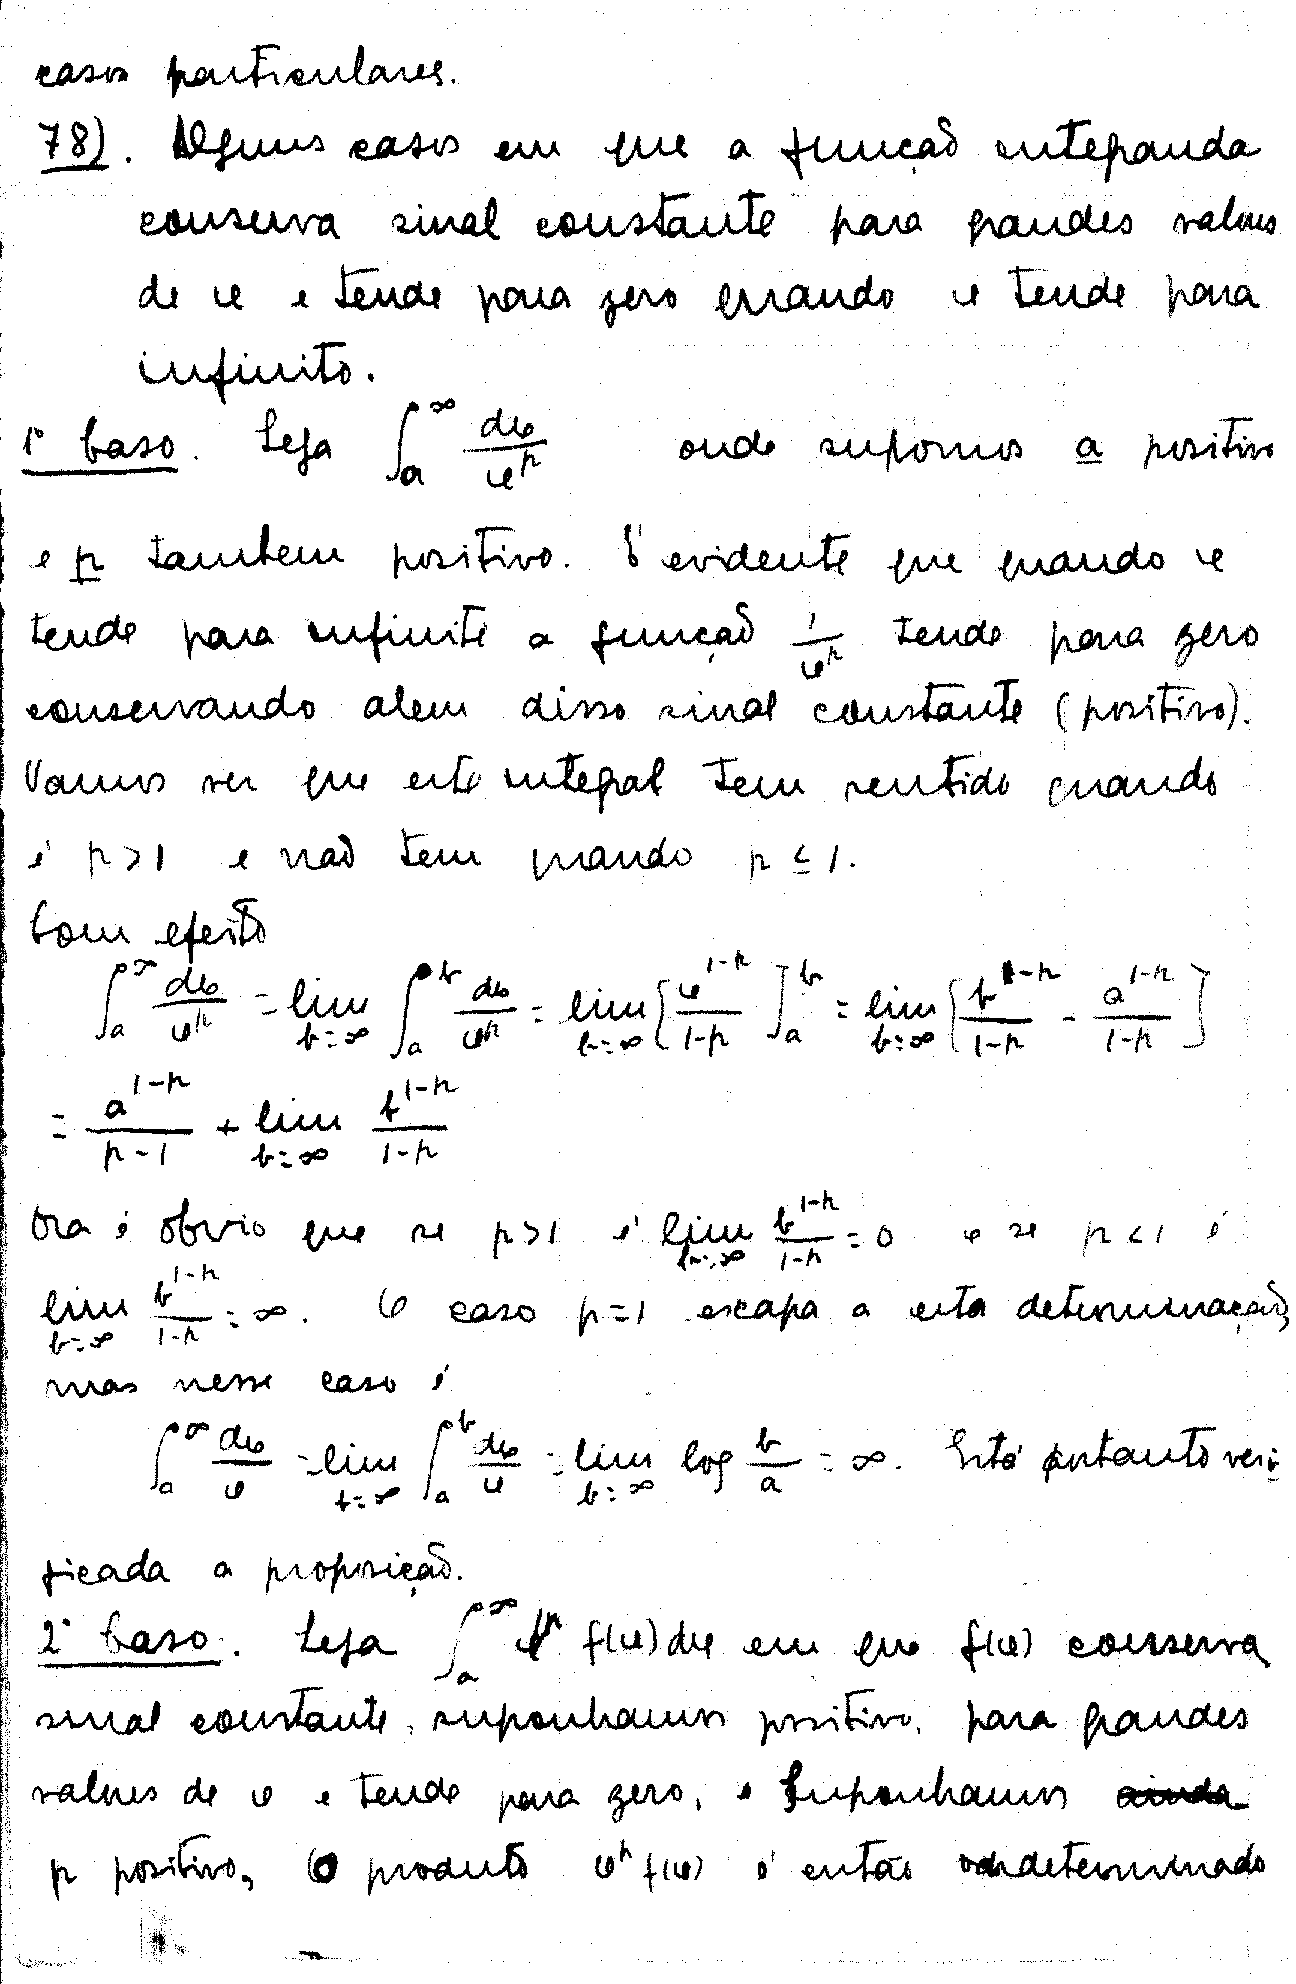 casos particulares.
78). Alguns casos em que a função integranda
conserva sinal constante para grandes valores
de x e tende para zero quando x tende para
infinito.
1º Caso. Seja ∫_a^∞ dx/x^p onde supomos a positivo
e p tambem positivo. É evidente que quando x
tende para infinito a função 1/x^p tende para zero
conservando alem disso sinal constante (positivo).
Vamos ver que este integral tem sentido quando
é p>1 e não tem quando p ≤ 1.
Com efeito
∫_a^∞ dx/x^p = lim_{b=∞} ∫_a^b dx/x^p = lim_{b=∞} [x^{1-p}/(1-p)]_a^b = lim_{b=∞} [b^{1-p}/(1-p) - a^{1-p}/(1-p)]
= a^{1-p}/(p-1) + lim_{b=∞} b^{1-p}/(1-p)
Ora é obvio que se p>1 é lim_{b=∞} b^{1-p}/(1-p) = 0 e se p<1 é
lim_{b=∞} b^{1-p}/(1-p) = ∞. O caso p=1 escapa a esta determinação,
mas nesse caso é
∫_a^∞ dx/x = lim_{b=∞} ∫_a^b dx/x = lim_{b=∞} log b/a = ∞. Está portanto veri-
ficada a proposição.
2º Caso. Seja ∫_a^∞ f(x)dx em que f(x) conserva
sinal constante, suponhamos positivo, para grandes
valores de x e tende para zero, e Suponhamos ainda
p positivo, O produto x^p f(x) é então indeterminado